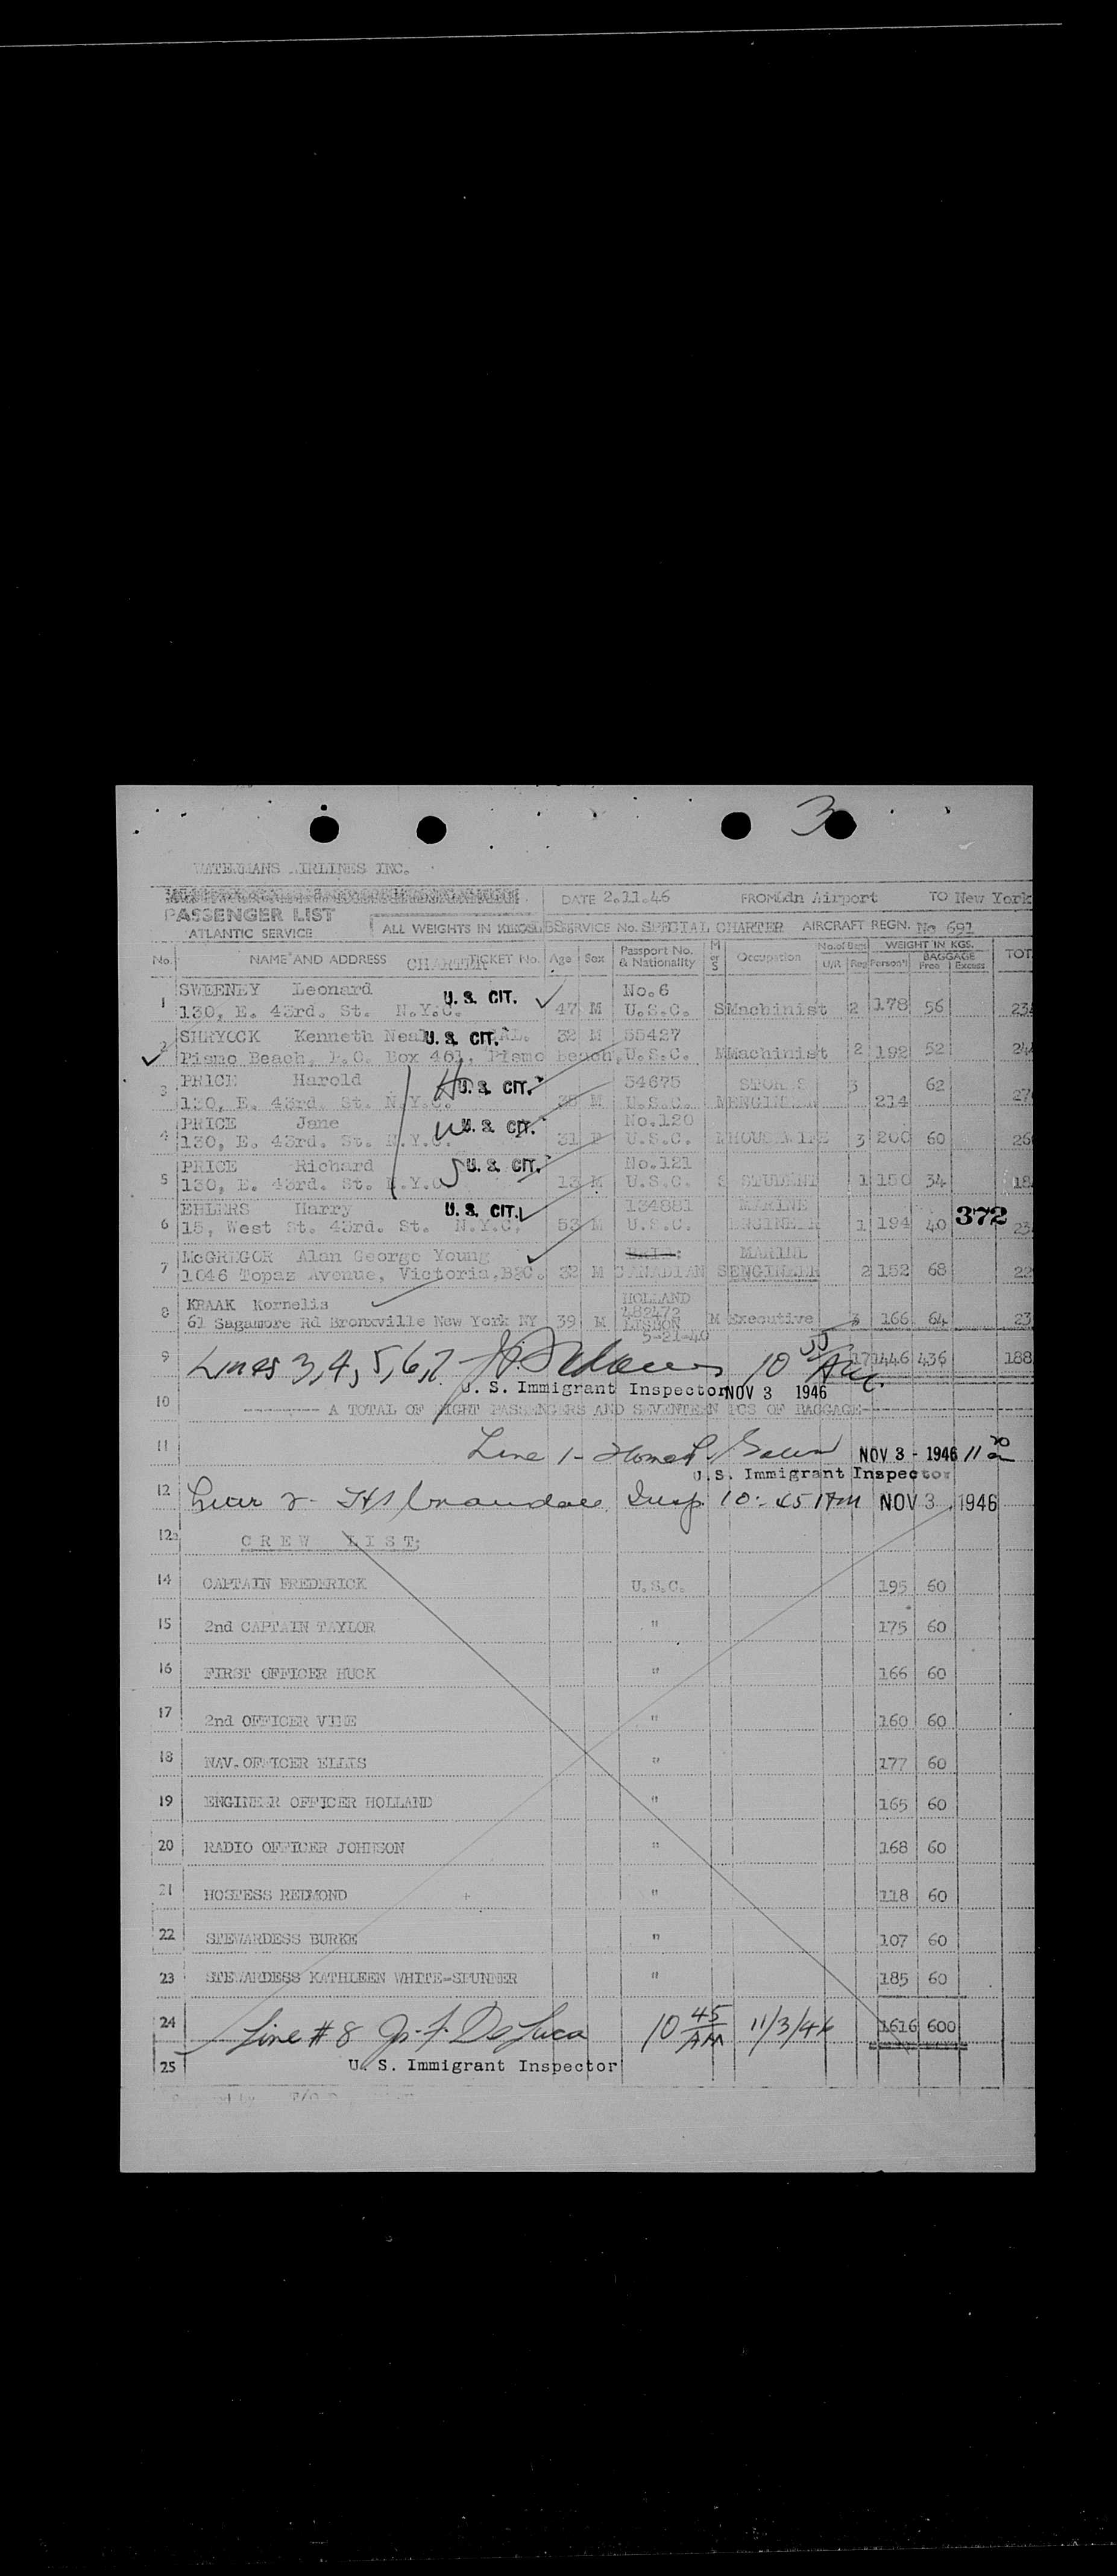 3
WATERMANS AIRLINES INC.
DATE 2.11.46 FROM Ldn Airport TO New York
PASSENGER LIST
ATLANTIC SERVICE ALL WEIGHTS IN LBS SERVICE No. SPECIAL CHARTER AIRCRAFT REGN. No 691
No. NAME AND ADDRESS CHARTER TICKET No. Age Sex Passport No. & Nationality M or S Occupation No. of Bags U/R Reg WEIGHT IN KGS. Person'l BAGGAGE Free Excess TOT
1 SWEENEY Leonard U. S. CIT. No.6
130, E. 43rd. St. N.Y.C. 47 M U.S.C. S Machinist 2 178 56 23
2 SHRYOCK Kenneth Neal U. S. CIT. 32 M 55427
Pismo Beach, P.O. Box 461, Pismo beach, U.S.C. M Machinist 2 192 52 24
3 PRICE Harold U. S. CIT. 54675 STORES 3 62
130, E. 43rd. St. N.Y.C. 38 M U.S.C. M ENGINEER 214 27
4 PRICE Jane U. S. CIT. No.120
130, E. 43rd. St. N.Y.C. 31 F U.S.C. M HOUSEWIFE 3 200 60 26
5 PRICE Richard U. S. CIT. No.121
130, E. 43rd. St. N.Y.C. 13 M U.S.C. S STUDENT 1 150 34 18
6 EHLERS Harry U. S. CIT. 134881 MARINE 372
15, West St. 43rd. St. N.Y.C. 53 M U.S.C. ENGINEER 1 194 40 23
7 McGREGOR Alan George Young MARINE
1046 Topaz Avenue, Victoria, B.C. 32 M CANADIAN S ENGINEER 2 152 68 22
8 KRAAK Kornelis HOLLAND 482472
61 Sagamore Rd Bronxville New York NY 39 M LISBON M Executive 3 166 64 23
5-21-40
9 Lines 3,4,5,6,7 10 55 AM 17 1446 436 188
U. S. Immigrant Inspector NOV 3 1946
10 A TOTAL OF EIGHT PASSENGERS AND SEVENTEEN PCS OF BAGGAGE
11 Line 1- NOV 3 - 1946 11
U.S. Immigrant Inspector
12 Line 2- Insp 10:45 AM NOV 3 1946
12a CREW LIST;
14 CAPTAIN FREDERICK U.S.C. 195 60
15 2nd CAPTAIN TAYLOR " 175 60
16 FIRST OFFICER HUCK " 166 60
17 2nd OFFICER VINE " 160 60
18 NAV.OFFICER ELLIS " 177 60
19 ENGINEER OFFICER HOLLAND " 165 60
20 RADIO OFFICER JOHNSON " 168 60
21 HOSTESS REDMOND " 118 60
22 STEWARDESS BURKE " 107 60
23 STEWARDESS KATHLEEN WHITE-SPUNNER " 185 60
24 Line #8 De Luca 10 45 AM 11/3/46 1616 600
25 U. S. Immigrant Inspector